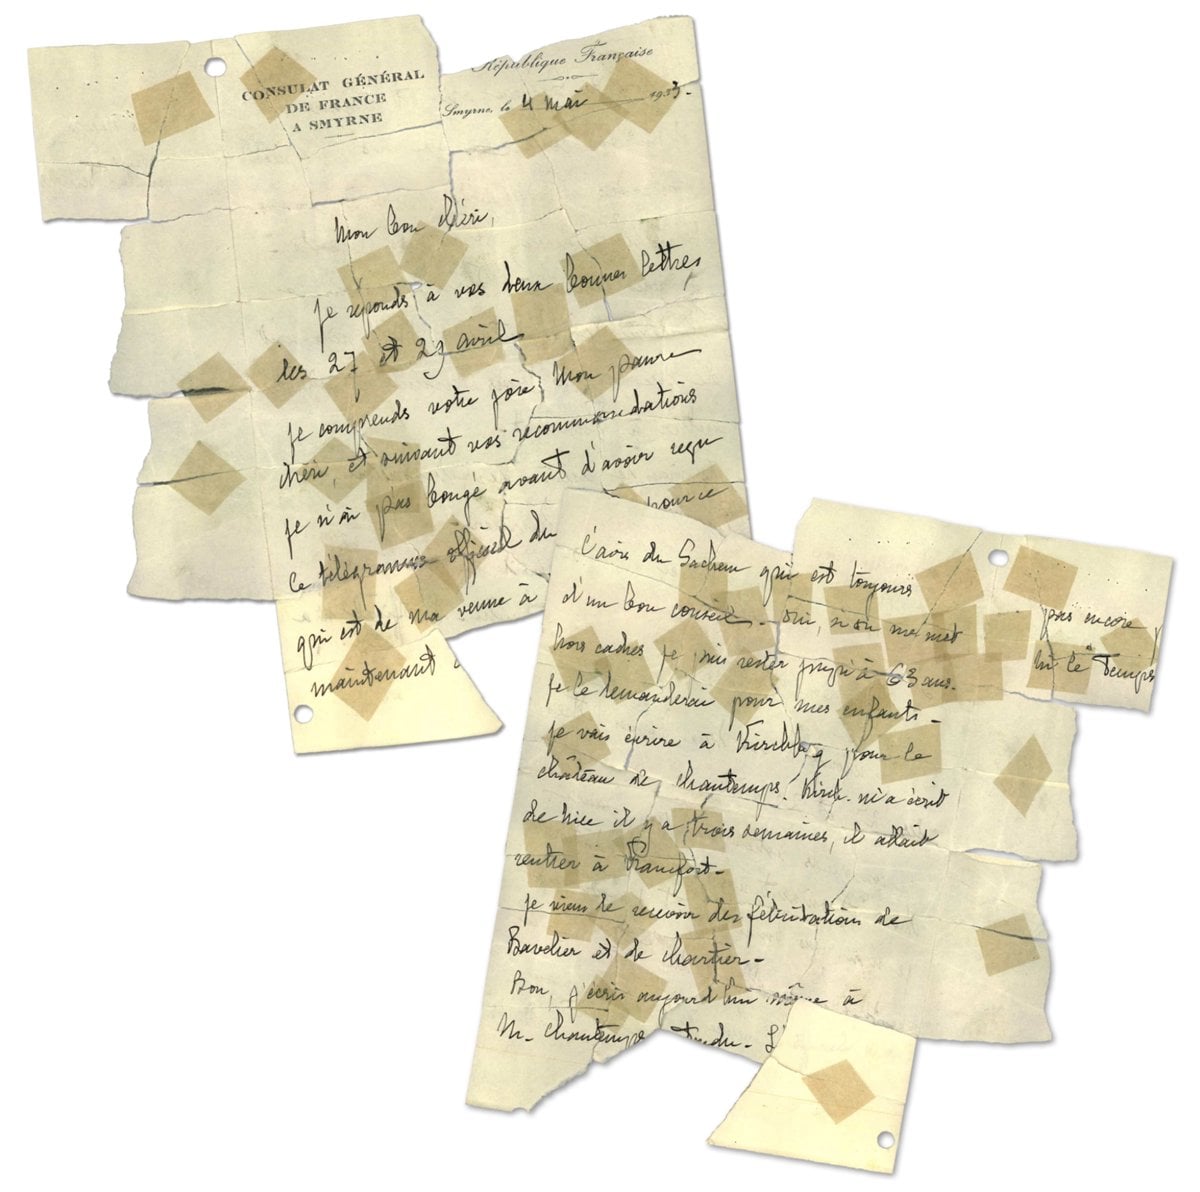 CONSULAT GÉNÉRAL
DE FRANCE
A SMYRNE
République Française
Smyrne, le 4 mai 1933.
Mon bon chéri,
je réponds à vos deux bonnes lettres
les 27 et 29 avril
je comprends votre joie mon pauvre
chéri, et suivant vos recommandations
je n'ai pas bougé avant d'avoir reçu
le télégramme officiel du pour ce
qui est de ma venue à
maintenant
l'avis du Sachem qui est toujours
d'un bon conseil - oui, si on me met
pas encore
hors cadres je puis rester jusqu'à 63 ans.
le Temps
je le demanderai pour mes enfants -
je vais écrire à Kirchbg pour le
château de chautemps. Kirch. m'a écrit
de Nice il y a trois semaines, il allait
rentrer à Francfort -
je viens de recevoir des félicitations de
Bavelier et de chartier -
Bon, j'écris aujourd'hui même à
M. chautemps